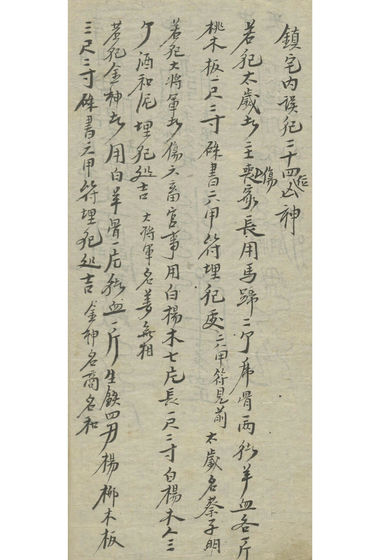 鎮宅內误犯二十四凶神
若犯太歲者主喪傷家長用馬蹄二个虎骨両獐羊血各一斤
桃木板一尺二寸硃書六甲符埋犯處六甲符見前 太歲名蔡子明
若犯大將軍者傷六畜官事用白楊木七片長一尺二寸白楊木人三
个酒和泥埋犯処吉 大將軍名姜無相
若犯金神者用白羊骨一片獐血一斤生鉄四刃楊柳木板
三尺二寸硃書六甲符埋犯処吉 金神名商名和